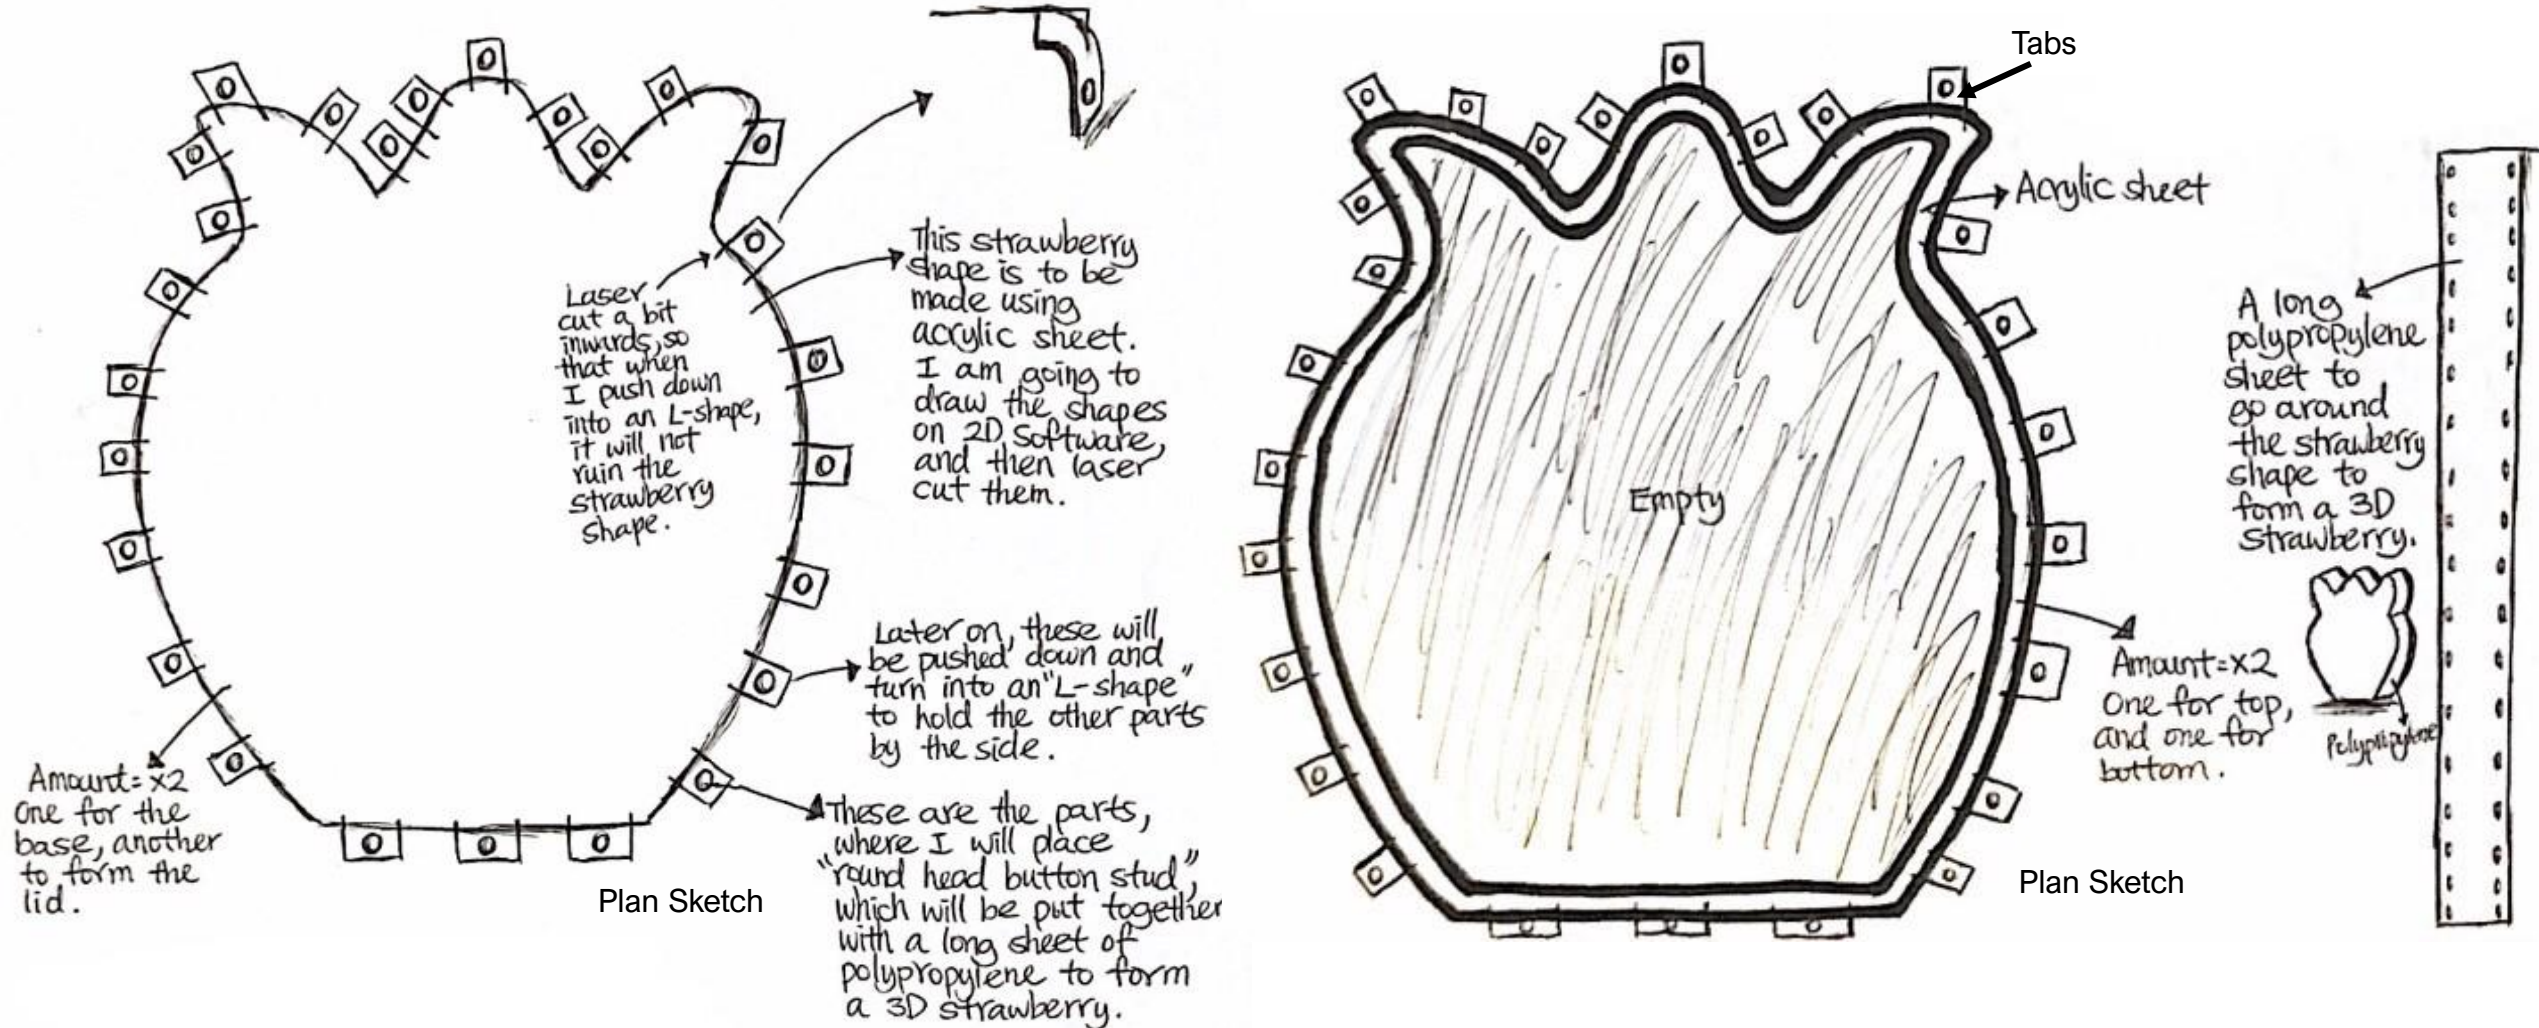 Laser
cut a bit
inwards, so
that when
I push down
into an L-shape,
it will not
ruin the
strawberry
shape.
This strawberry
shape is to be
made using
acrylic sheet.
I am going to
draw the shapes
on 2D software,
and then laser
cut them.
Later on, these will
be pushed down and
turn into an "L-shape"
to hold the other parts
by the side.
These are the parts,
where I will place
"round head button stud",
which will be put together
with a long sheet of
polypropylene to form
a 3D strawberry.
Amount= x2
One for the
base, another
to form the
lid.
Plan Sketch
Tabs
Acrylic sheet
Empty
Amount=x2
One for top,
and one for
bottom.
Plan Sketch
A long
polypropylene
sheet to
go around
the strawberry
shape to
form a 3D
strawberry.
Polypropylene